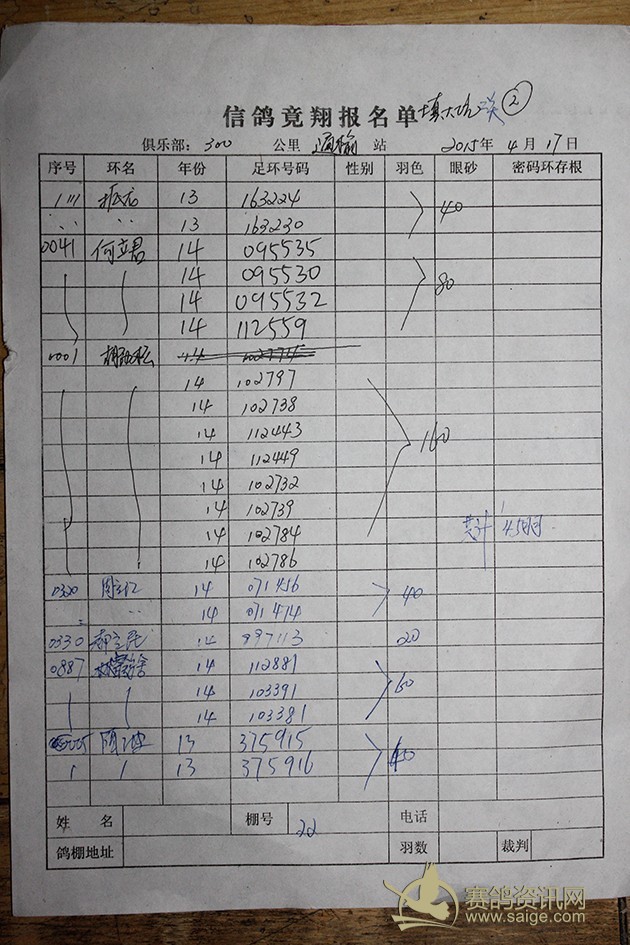 信鸽竟翔报名单 ②
俱乐部: 300 公里 通榆 站 2015年 4月 17日
序号 环名 年份 足环号码 性别 羽色 眼砂 密码环存根
13 163224 40
〃 〃 13 163230
0041 何立君 14 095535
14 095530 80
14 095532
14 112559
0001
14 102797
14 102738
14 112443 160
14 112449
14 102732
14 102739
14 102784 共计
14 102786
0320 14 071456 40
〃 14 071474
0330 14 997113 20
0887 14 112881
14 103391 60
14 103381
13 375915 40
13 375916
姓名 棚号 22 电话
鸽棚地址 羽数 裁判
赛鸽资讯网
www.saige.com